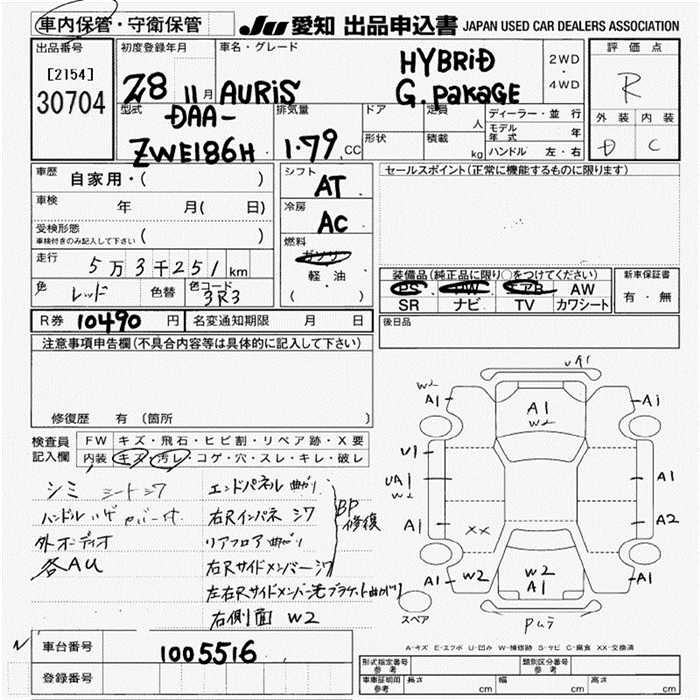 車内保管・守衛保管
JU 愛知 出品申込書 JAPAN USED CAR DEALERS ASSOCIATION
出品番号
[2154]
30704
初度登録年月
28 11月
車名・グレード
AURIS
HYBRID
G. PAKAGE
2WD
・
4WD
評価点
R
外装 内装
D C
型式
DAA-
ZWE186H
排気量
1.79 CC
ドア
定員 人
形状
積載 kg
ディーラー・並行
モデル年式 年
ハンドル 左・右
車歴 自家用・( )
車検 年 月( 日)
受検形態 ( )
車検付きのみ記入して下さい
走行 5万3千251km
色 レッド 色替 色コード 3R3
シフト
AT
冷房
AC
燃料
ガソリン
軽・油
( )
セールスポイント(正常に機能するものに限ります)
装備品(純正品に限り○をつけてください)
PS PW エアB AW
SR ナビ TV カワシート
新車保証書
有・無
R券 10490 円 名変通知期限 月 日
後日品
注意事項申告欄(不具合内容等は具体的に記入して下さい)
修復歴 有 (箇所 )
検査員記入欄
FW キズ・飛石・ヒビ割・リペア跡・X要
内装 キズ・汚レ・コゲ・穴・スレ・キレ・破レ
シミ シートシワ
外オーディオ
各AU
エンドパネル曲がり
右Rインパネシワ
リアフロア曲がり
右Rサイドメンバーシワ
左右Rサイドメンバー先ブラケット曲がり
右側面 W2
BP修復
UA1
W2
A1
A1
W2
A1
A1
U1
UA1
W2
A1
A1
A2
XX
A1
W2
W2
A1
W2
A1
スペア
A-キズ E-エクボ U-凹み W-補修跡 S-サビ C-腐食 XX-交換済
N
車台番号 1005516
登録番号
形式指定番号 参考
類別区分番号 参考
車庫証明用 参考
長さ cm 幅 cm 高さ cm